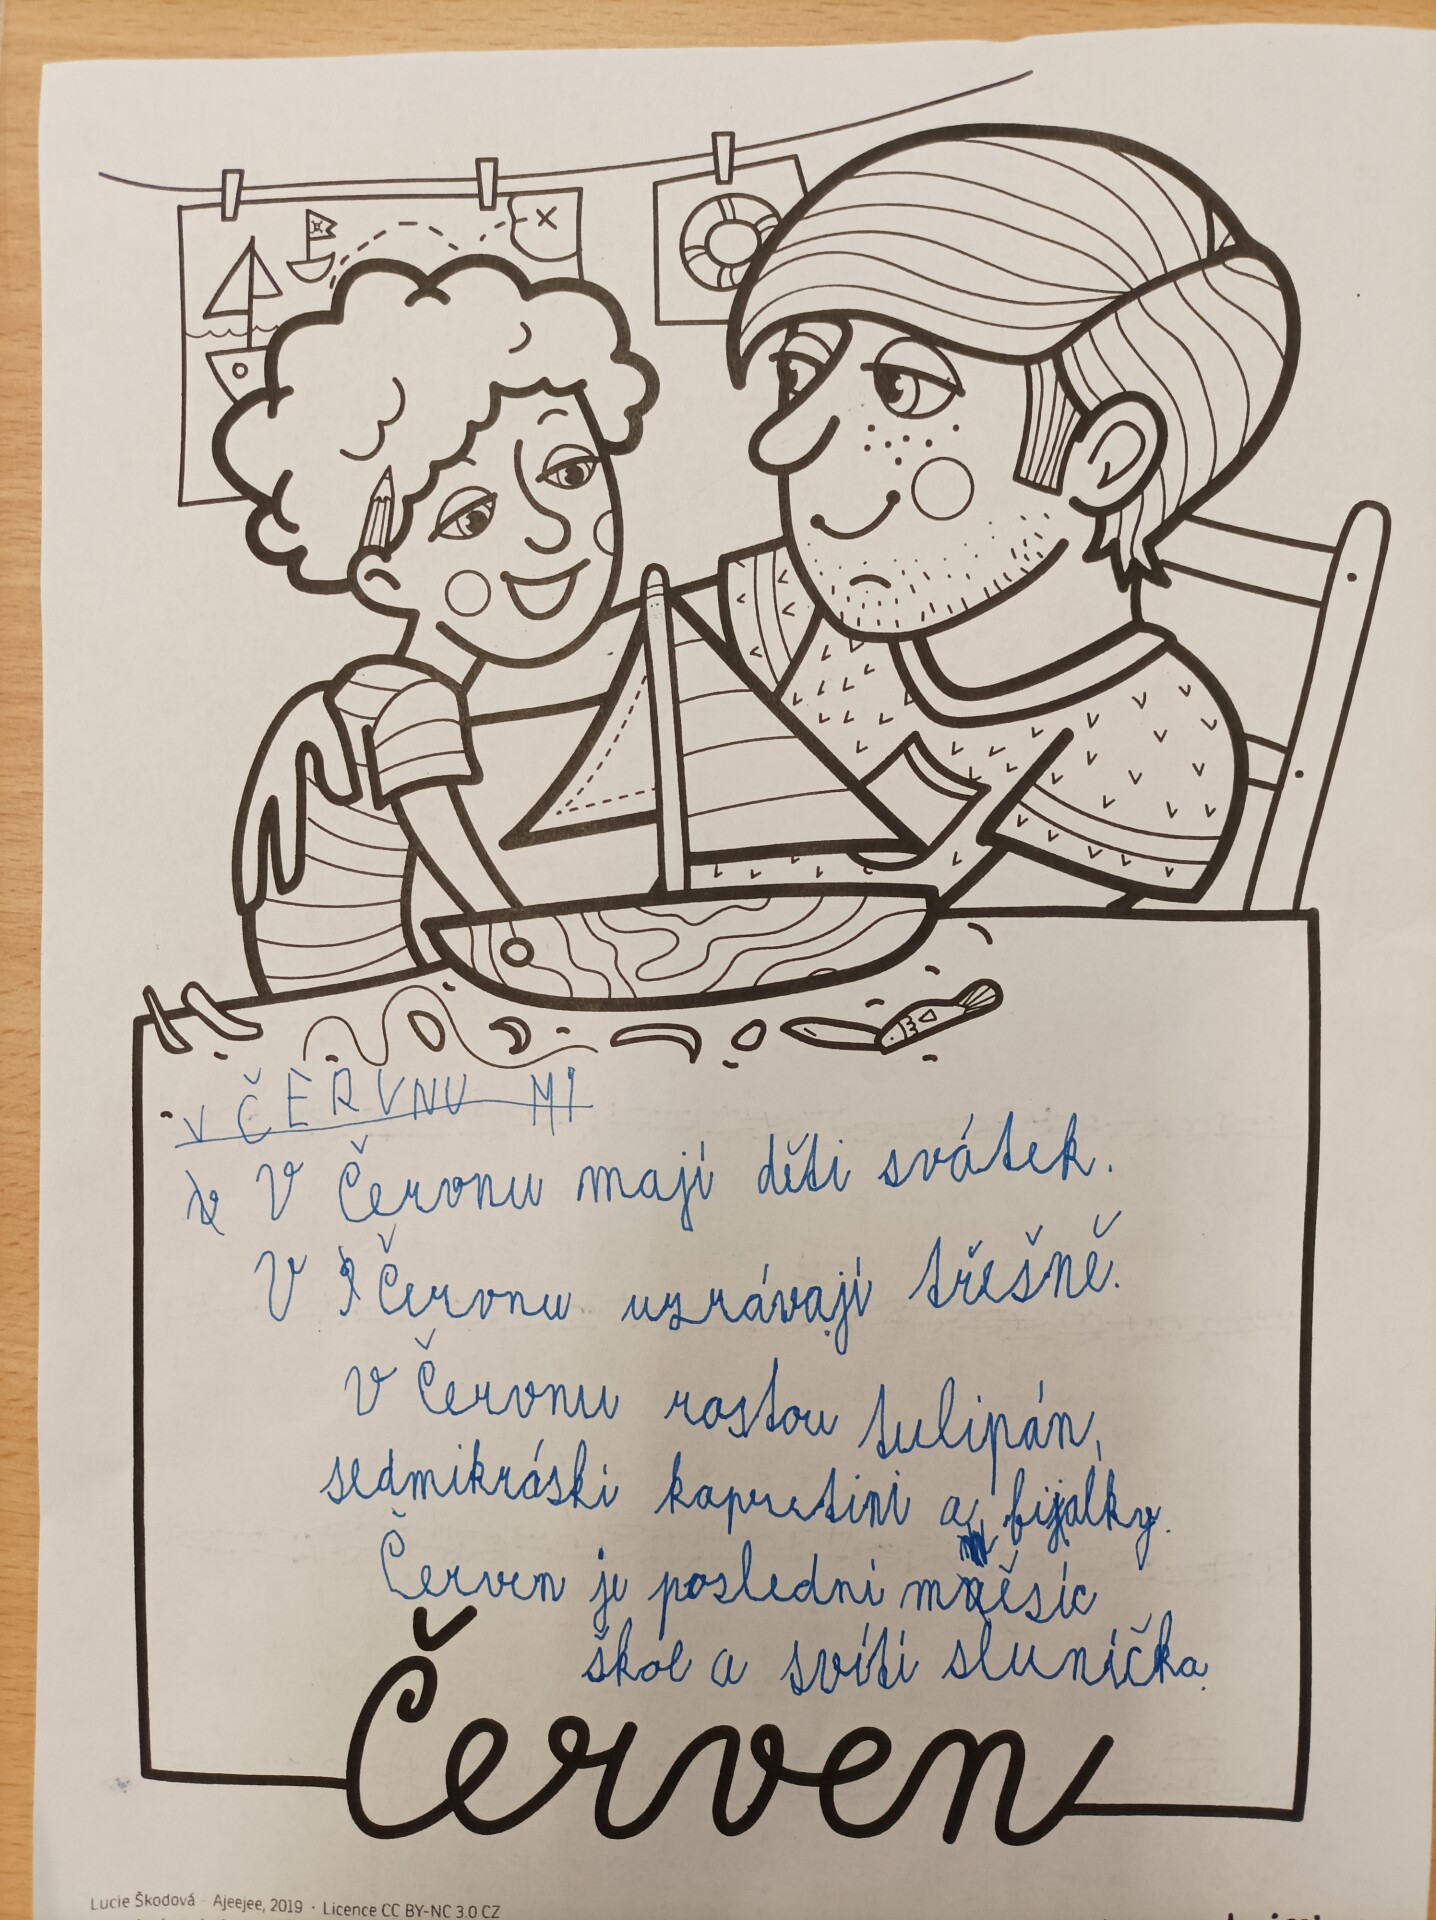 V ČERVNU MI
V Červnu mají děti svátek.
V Červnu uzrávají třešně.
V Červnu rostou tulipán,
sedmikráski kopretini a fijalky.
Červen je poslední měsíc
škol a svítí sluníčko.
Červen
Lucie Škodová - Ajeejee, 2019 · Licence CC BY-NC 3.0 CZ